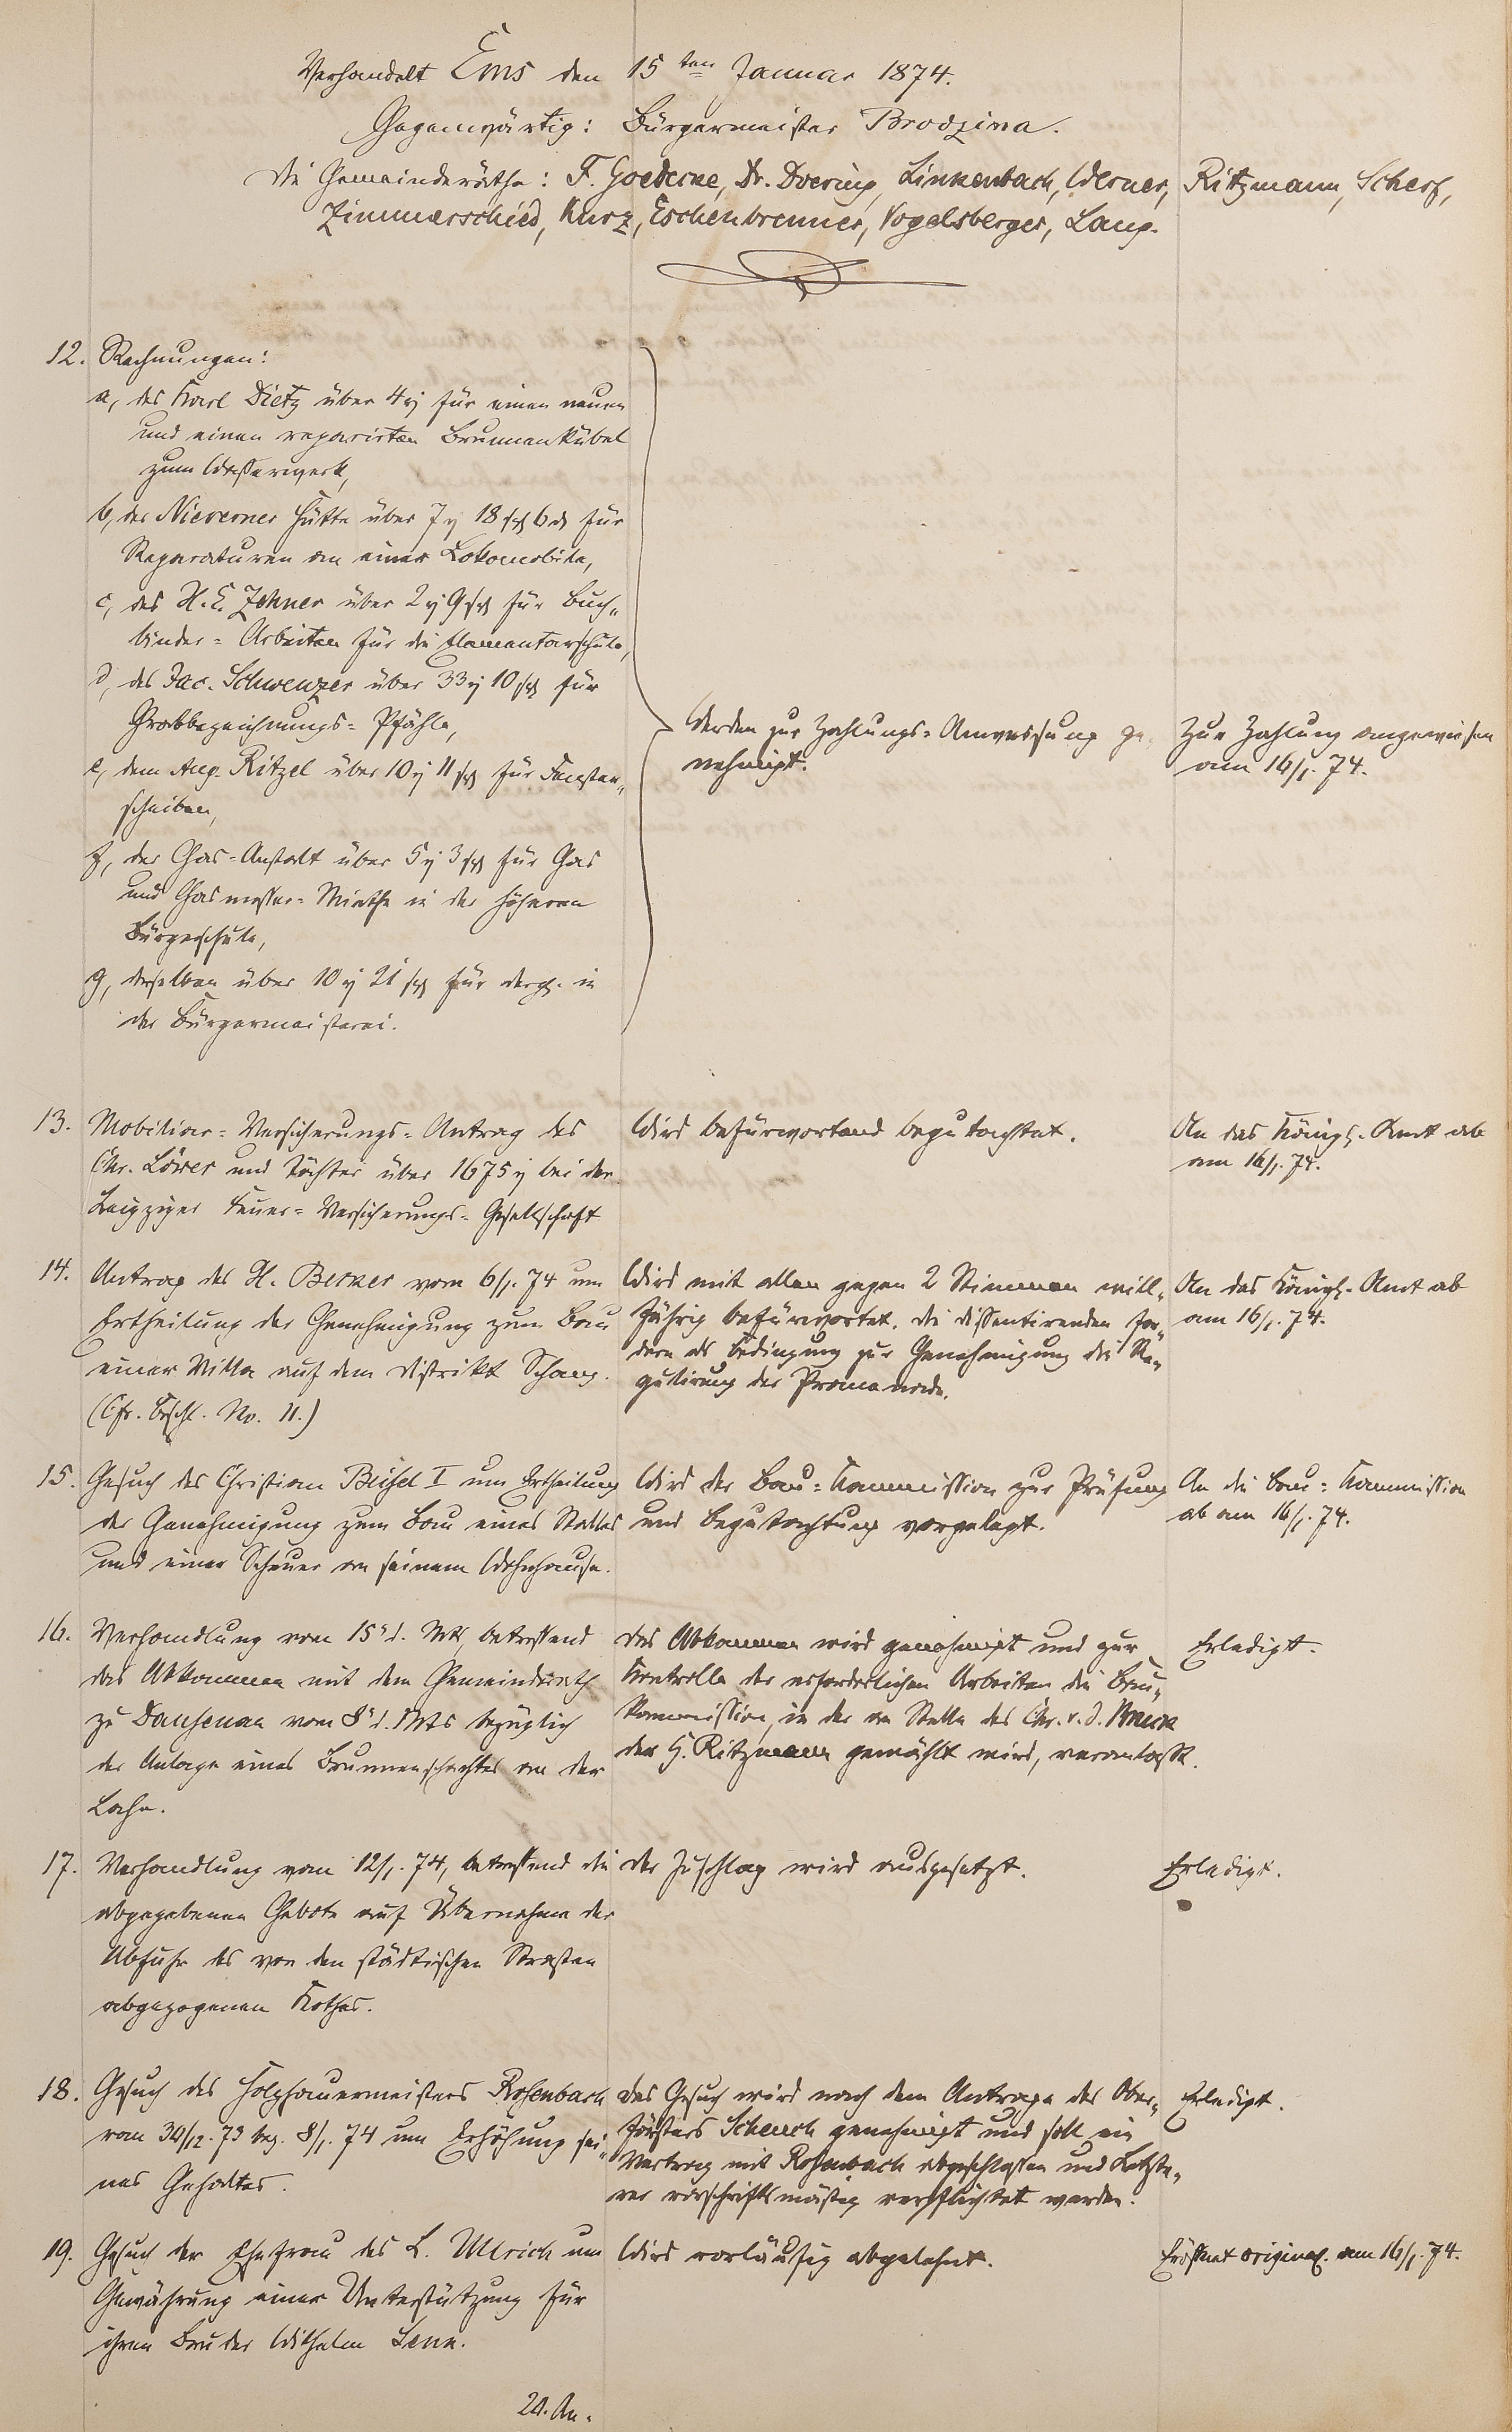 Verhandelt Ems den 15ten Januar 1874.
Gegenwärtig: Bürgermeister Brodzina.
die Gemeinderäthe: F. Goedecke, Dr. Doering, Linkenbach, Werner, Ritzmann, Scherf,
Zimmerschied, Kurz, Eschenbrenner, Vogelsberger, Lang.
12. Rechnungen:
a, des Karl Dietz über 4 für einen neuen
und einen reparirten Brunnenkübel
zum Wasserwerk,
b, der Nieverner Hütte über 7 18 sgr 6 d für
Reparaturen an einer Lokomobile,
c, des H. C. Zehner über 2 9 sgr für Buch„
binder=Arbeiten für die Elementarschule,
d, des Jac. Schwenzer über 33 10 sgr für
Grabbezeichnungs=Pfähle,
e, dem Aug. Ritzel über 10 11 sgr für Fenster„
scheiben,
f, der Gas=Anstalt über 5 3 sgr für Gas
und Gasmesser=Miethe in der höheren
Bürgerschule,
g, derselben über 10 21 sgr für dergl. in
der Bürgermeisterei.
Werden zur Zahlungs=Anweisung ge„
nehmigt.
Zur Zahlung angewiesen
am 16/1. 74.
13. Mobiliar=Versicherungs=Antrag des
Chr. Löwer und Töchter über 1675 bei der
Leipziger Feuer=Versicherungs=Gesellschaft
Wird befürwortend begutachtet.
An das Königl. Amt ab
am 16/1. 74.
14. Antrag des H. Berner vom 6/1. 74 um
Ertheilung der Genehmigung zum Bau
einer Villa auf dem Distrikt Schanz.
(Cfr. Beschl. No. 11.)
Wird mit allen gegen 2 Stimmen will„
fährig befürwortet. Die Dissentirenden for„
dern als Bedingung zur Genehmigung die Re„
gulirung der Promenade.
An das Königl. Amt ab
am 16/1. 74.
15. Gesuch des Christian Beisel I um Ertheilung
der Genehmigung zum Bau eines Stalles
und einer Scheuer an seinem Wohnhause.
Wird der Bau=Kommission zur Prüfung
und Begutachtung vorgelegt.
An die Bau=Kommission
ab am 16/1. 74.
16. Verhandlung vom 15' d. Mts, betreffend
das Abkommen mit dem Gemeinderath
zu Dausenau vom 8' d. Mts bezüglich
der Anlage eines Brunnenschachtes an der
Lahn.
Das Abkommen wird genehmigt und zur
Kontrolle der erforderlichen Arbeiten die Bau„
kommission, in der an Stelle des Chr. v. d.
der H. Ritzmann gewählt wird, veranlaßt.
Erledigt.
17. Verhandlung vom 12/1. 74, betreffend die
abgegebenen Gebote auf Übernahme der
Abfuhr des von den städtischen Straßen
abgezogenen Kothes.
Der Zuschlag wird ausgesetzt.
Erledigt.
18. Gesuch des Holzhauermeisters Rosenbach
vom 30/12. 73 bez. 8/1. 74 um Erhöhung sei„
nes Gehaltes.
Das Gesuch wird nach dem Antrage des Ober„
försters Schenck genehmigt und soll ein
Vertrag mit Rosenbach abgeschlossen und Letzte„
rer vorschriftsmäßig verpflichtet werden.
Erledigt.
19. Gesuch der Ehefrau des L. Ullrich um
Gewährung einer Unterstützung für
ihren Bruder Wilhelm Lenn.
Wird vorläufig abgelehnt.
Eröffnet original. am 16/1. 74.
20. An„